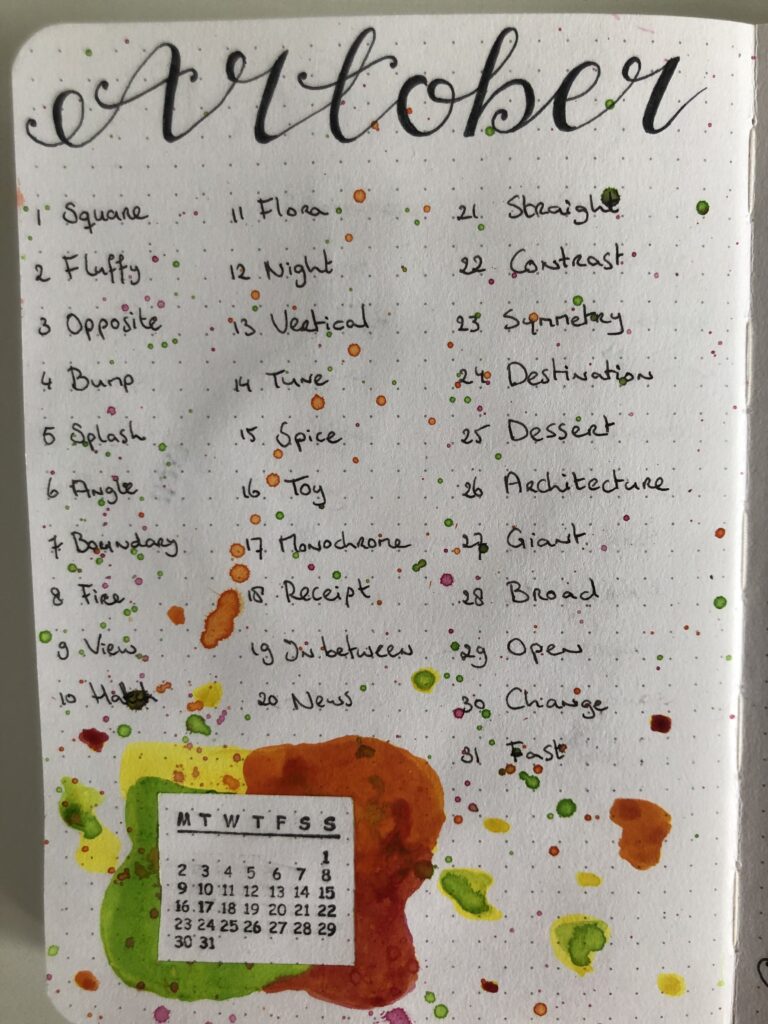 Artober
1 Square
2 Fluffy
3 Opposite
4 Bump
5 Splash
6 Angle
7 Boundary
8 Fire
9 View
10
11 Flora
12 Night
13 Vertical
14 Tune
15 Spice
16 Toy
17 Monochrome
18 Receipt
19 In between
20 News
21 Straight
22 Contrast
23 Symmetry
24 Destination
25 Dessert
26 Architecture
27 Giant
28 Broad
29 Open
30 Change
31 Fast
M T W T F S S
1
2 3 4 5 6 7 8
9 10 11 12 13 14 15
16 17 18 19 20 21 22
23 24 25 26 27 28 29
30 31